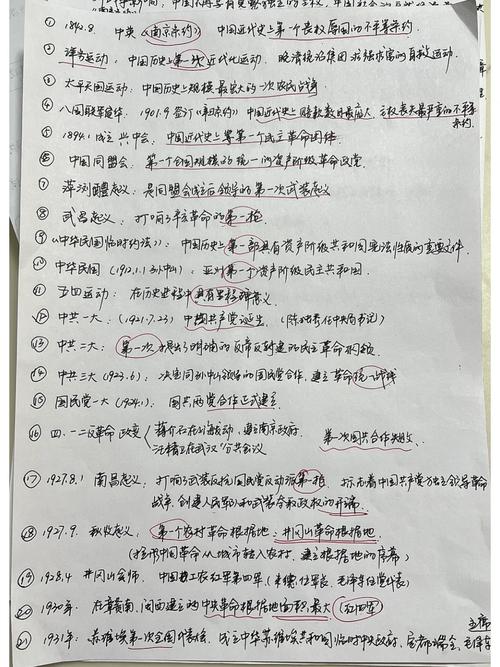 ① 1842.8. 中英《南京条约》 中国近代史上第一个丧权辱国的不平等条约.
② 洋务运动: 中国历史上第一次近代化运动. 晚清统治集团求强求富的自救运动.
③ 太平天国运动: 中国历史上规模最宏大的一次农民战争
④ 八国联军侵华: 1901.9 签订《辛丑条约》中国近代史上赔款数目最庞大、主权丧失最严重的不平等
条约.
⑤ 1894.1 成立兴中会, 中国近代史上第一个民主革命团体.
⑥ 中国同盟会: 第一个全国规模的统一的资产阶级革命政党
⑦ 萍浏醴起义: 是同盟会成立后领导的第一次武装起义
⑧ 武昌起义: 打响了辛亥革命的第一枪
⑨ 《中华民国临时约法》: 中国历史上第一部具有资产阶级共和国宪法性质的重要文件.
⑩ 中华民国 (1912.1.1 孙中山): 亚洲第一个资产阶级民主共和国
⑪ 五四运动: 在历史进程中具有里程碑意义.
⑫ 中共一大: (1921.7.23) 中国共产党诞生. (陈独秀任中央局书记)
⑬ 中共二大: 第一次提出了明确的反帝反封建的民主革命纲领
⑭ 中共三大 (1923.6): 决定同孙中山领导的国民党合作, 建立革命统一战线
⑮ 国民党一大 (1924.1): 国共两党合作正式建立.
⑯ 四·一二反革命政变 蒋介石在上海发动, 建立南京政府. 第一次国共合作失败.
汪精卫在武汉"分共会议
⑰ 1927.8.1 南昌起义: 打响了武装反抗国民党反动派第一枪 标志着中国共产党独立领导革命
战争、创建人民军队和武装夺取政权的开端.
⑱ 1927.9. 秋收起义: 第一个农村革命根据地: 井冈山革命根据地.
(拉开中国革命从城市转入农村, 建立根据地的序幕)
⑲ 1928.4 井冈山会师. 中国工农红军第四军 (朱德任军长, 毛泽东任党代表)
⑳ 1930年. 在赣南、闽西建立的中央革命根据地面积最大
主席
㉑ 1931年. 苏维埃第一次全国代表大会, 成立中华苏维埃共和国临时中央政府, 定都瑞金, 毛泽东